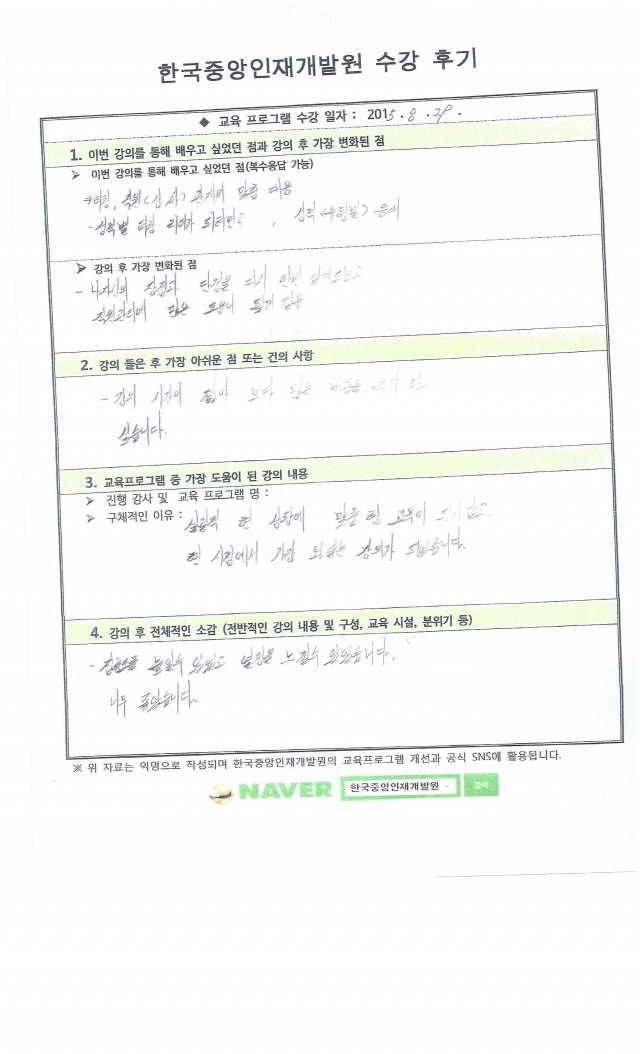 한국중앙인재개발원 수강 후기
◆ 교육 프로그램 수강 일자 : 2015 . 8 . 29 .
1. 이번 강의를 통해 배우고 싶었던 점과 강의 후 가장 변화된 점
➢ 이번 강의를 통해 배우고 싶었던 점(복수응답 가능)
직원<상,하> 관계의 맞춤 대응
- 성격별 리더가 되려면? , 성격<유형별> 응대
➢ 강의 후 가장 변화된 점
- 나자신의 장점과 단점을 다시 한번
직원관리에 많은 도움이 될거 같음
2. 강의 들은 후 가장 아쉬운 점 또는 건의 사항
- 강의 시간이 짧아 보다 많은 내용을 듣고
싶습니다.
3. 교육프로그램 중 가장 도움이 된 강의 내용
➢ 진행 강사 및 교육 프로그램 명 :
➢ 구체적인 이유 : 현 상황에 맞춤 현 교육이
현 시점에서 가장 강의가 되었습니다.
4. 강의 후 전체적인 소감 (전반적인 강의 내용 및 구성, 교육 시설, 분위기 등)
- 집중도를 높일수 있었고 열정을 느낄수 있었습니다.
너무 좋았습니다.
※ 위 자료는 익명으로 작성되며 한국중앙인재개발원의 교육프로그램 개선과 공식 SNS에 활용됩니다.
NAVER 한국중앙인재개발원 검색